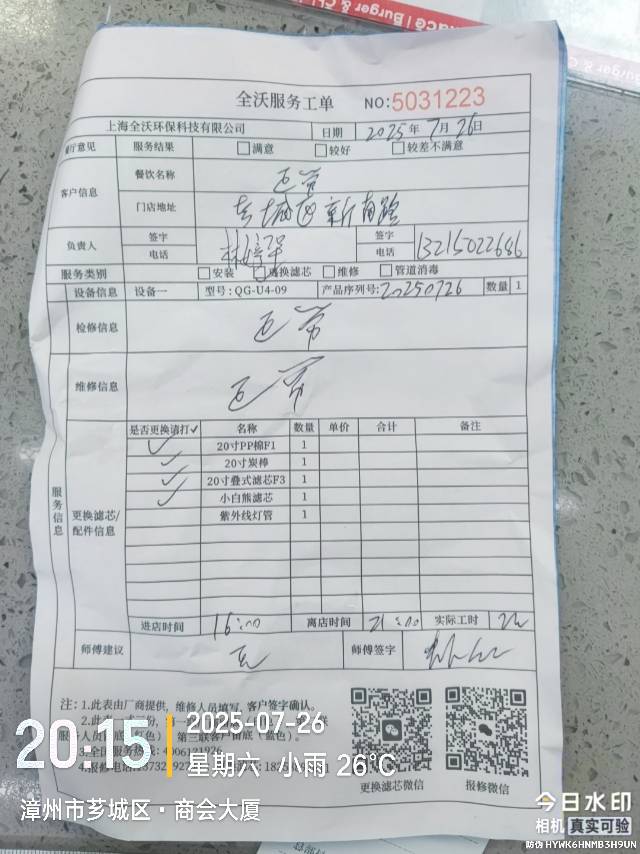 全沃服务工单 NO:5031223
上海全沃环保科技有限公司 日期 2025年7月26日
餐厅意见 服务结果 □满意 □较好 □较差不满意
客户信息 餐饮名称 正常
门店地址 芗城区新南路
负责人 签字 签字
电话 电话 13215022646
服务类别 □安装 □更换滤芯 □维修 □管道消毒
设备信息 设备一 型号:QG-U4-09 产品序列号:20250726 数量 1
检修信息 正常
维修信息 正常
服务信息
更换滤芯/配件信息
是否更换请打✓ 名称 数量 单价 合计 备注
✓ 20寸PP棉F1 1
✓ 20寸炭棒 1
✓ 20寸叠式滤芯F3 1
✓ 小白熊滤芯 1
紫外线灯管 1
进店时间 16:00 离店时间 21:00 实际工时
师傅建议 无 师傅签字
注:1.此表由厂商提供,维修人员填写,客户签字确认。
更换滤芯微信 报修微信
20:15 2025-07-26
星期六 小雨 26°C
漳州市芗城区·商会大厦
今日水印
相机 真实可验
防伪 HYWK6HNMB3H9UN